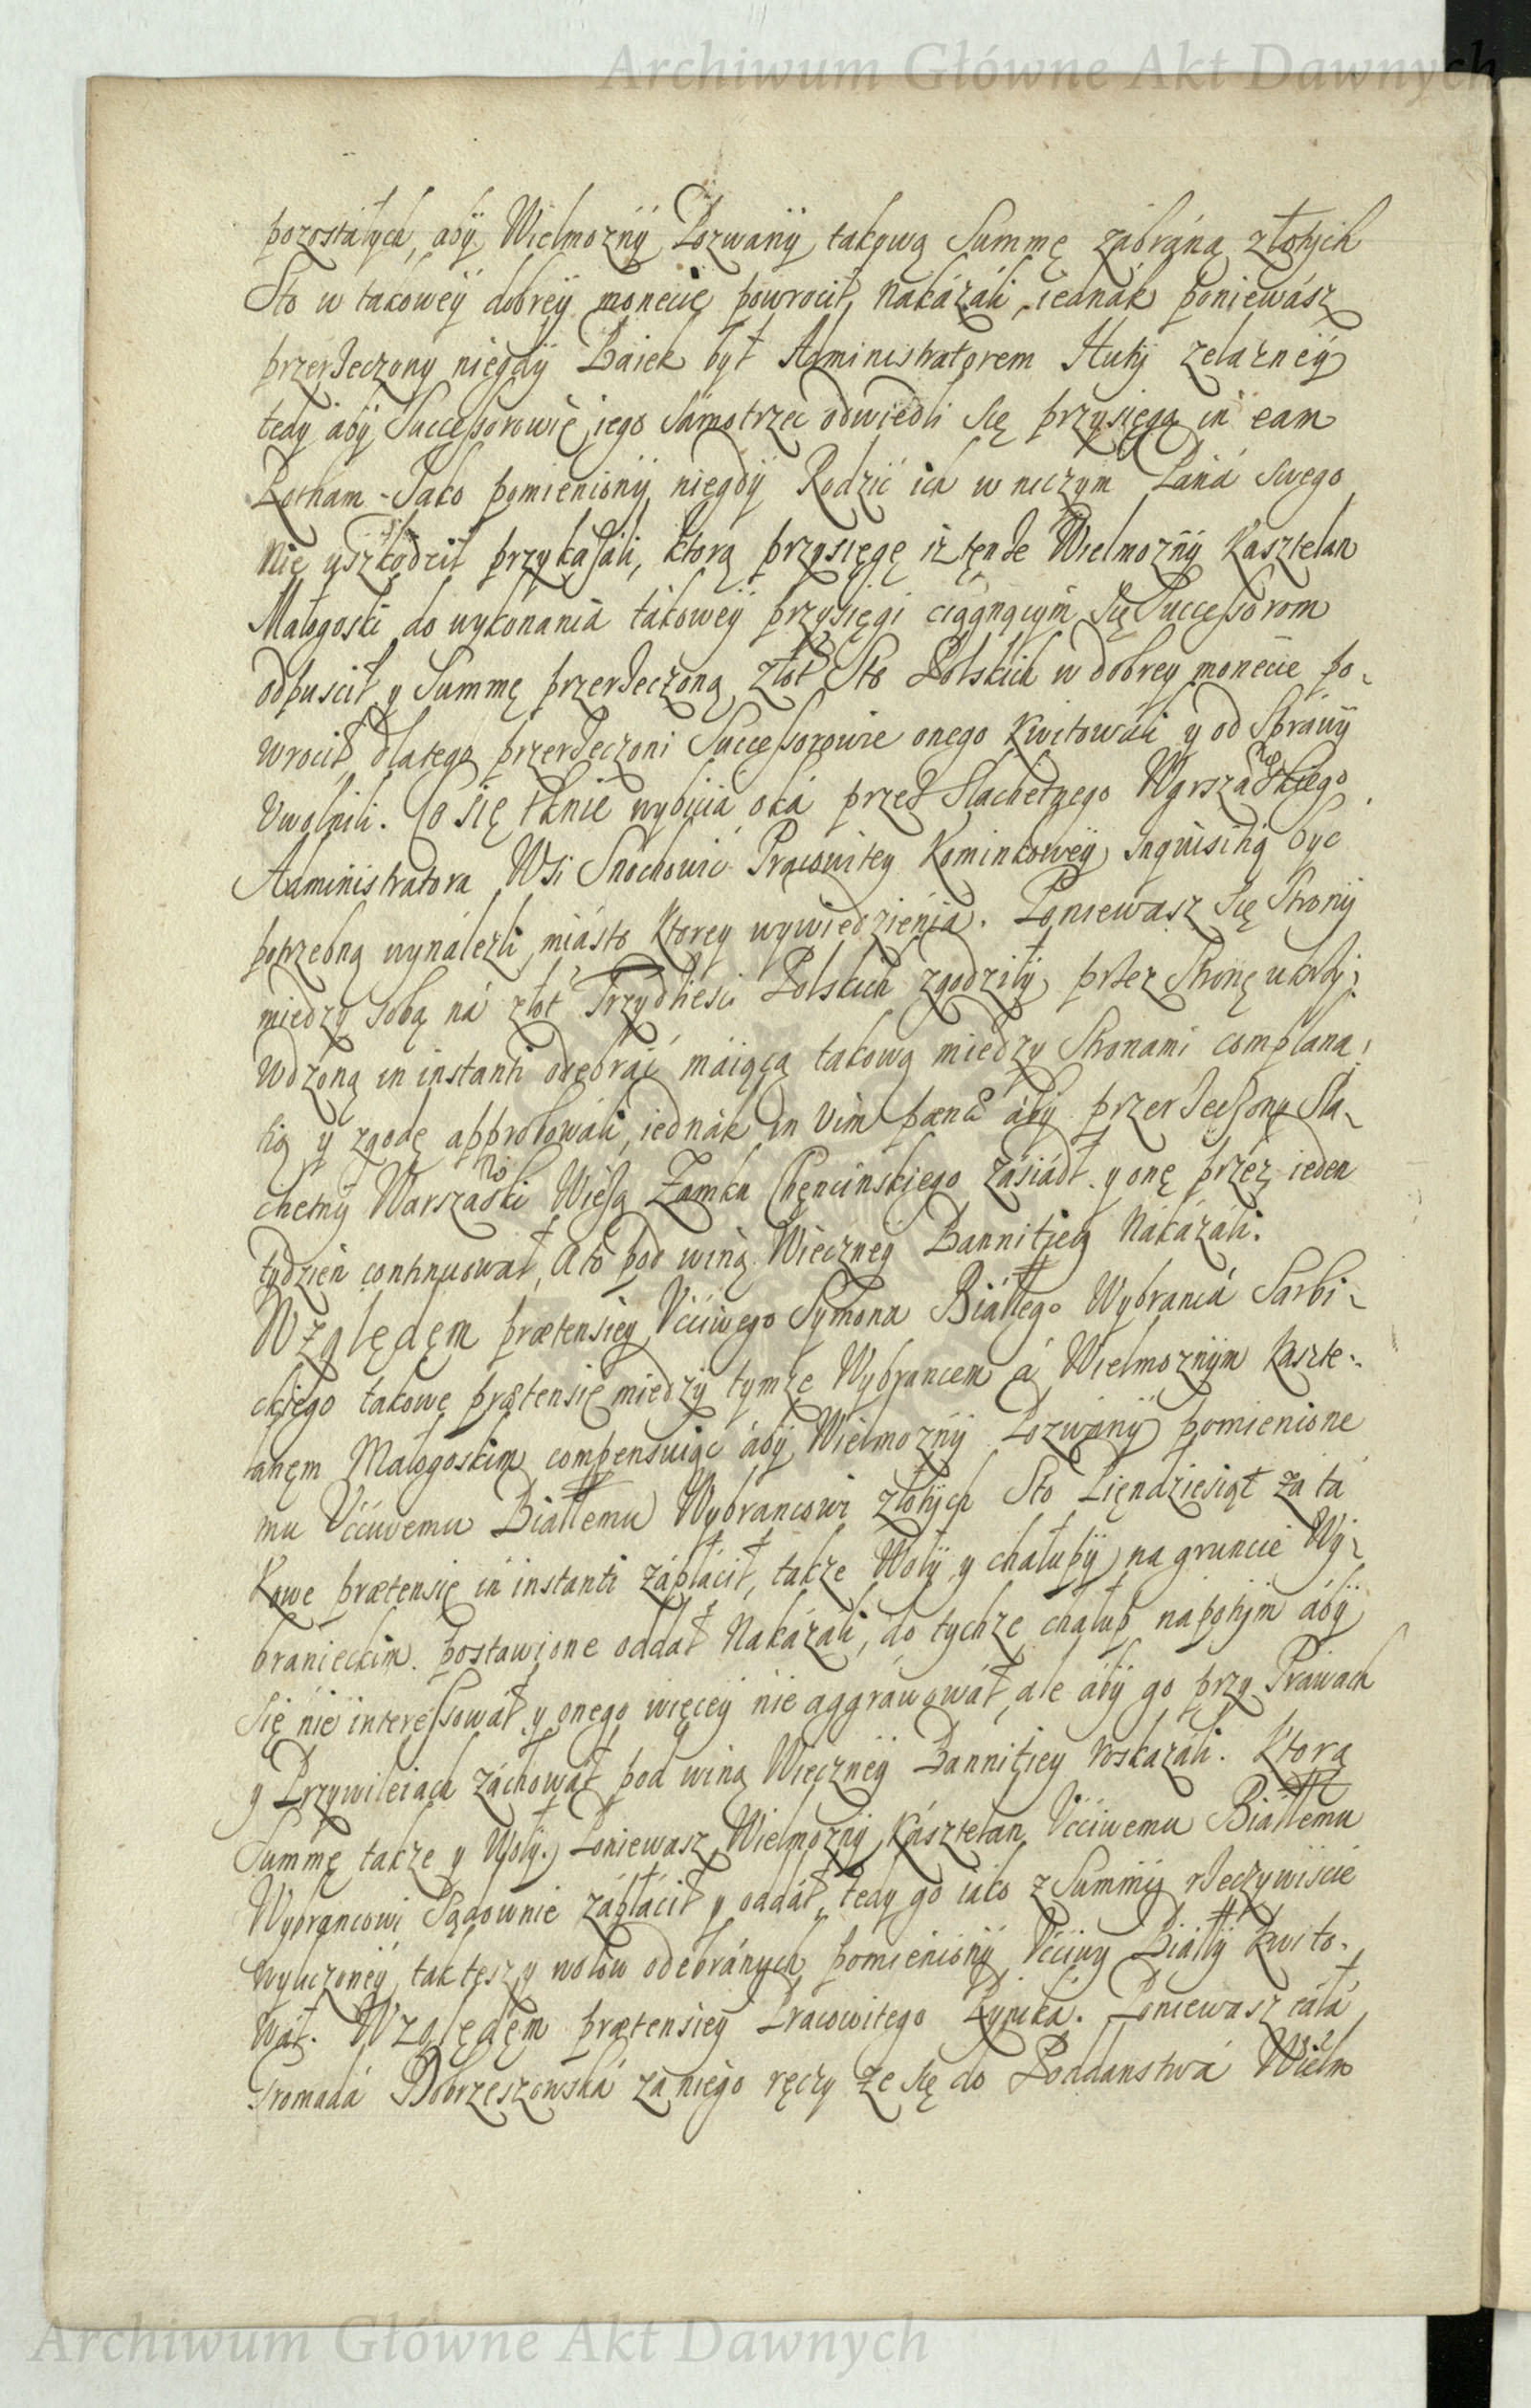 Archiwum Główne Akt Dawnych
pozostałych, abÿ Wielmoznÿ Pozwanÿ takową Summę zábráną złotÿch
Sto w takoweÿ dobreÿ monecie powrocił, nakázáli, iednák poniewász
przerzeczony niegdÿ Baiek był Administratorem Hutÿ zelázneÿ
tedy abÿ Successorowie iego Samotrzec odwiedli Się przysięgą in eam
Rotham - Jako pomienionÿ niegdÿ Rodzic ich w niczym Páná Swego
nie uszkodził przykazáli, ktorą przysięgę iż tenże Wielmoznÿ Kasztelan
Małogoski do wykonania tákoweÿ przysięgi ciągnącym Się Successorom
odpuscił y Summę przerzeczoną złot Sto Polskich w dobrey monecie po-
wrocił, dlatego przerzeczoni Successorowie onego kwitowáli y od Spráwÿ
Uwolnili. Co się tknie wybicia oká przez Slachetnego Warszaskiego
Administratora Wsi Snochowic Pracowitey Kominkoweÿ, Inquisitią bÿc
potrzebną wynálezli, miásto ktorey wywiedzienia. Poniewasz Się Stronÿ
między sobą ná złot Trzydziesci Polskich zgodziłÿ, przez Stronę ukrzÿ-
wdzoną in instanti odebráć máiącą takową między Stronami complana-
tią y zgodę approbowáli, iednák in vim pænæ ábÿ przerzeczony Sla-
chetnÿ Warszaski Wiezą Zamku Chęncinskiego zásiádł y onę przez ieden
tydzien continuował, á to pod winą Wieczneÿ Bannitÿeÿ Nákázáli.
Względęm prætensieÿ Uććiwego Symona Białłego Wybrancá Sarbi-
ckiego takowe prætensie między tymze Wybrancem á Wielmoznÿm Kaszte-
lanęm Małogoskim compensuiąc ábÿ Wielmoznÿ Pozwanÿ pomienione
mu Uććiwemu Białłemu Wybrancowi złotÿch Sto Pięndziesiąt zá tá
kowe prætensie in instanti zápłácił, takze Wołÿ y chałupÿ na gruncie Wÿ-
branieckim postawione oddał Nakázáli, do tychze chałup napotÿm ábÿ
Się nie interessował y onego więceÿ nie aggráwował, ale ábÿ go przy Prawach
y Przywileiach záchował pod winą Wieczneÿ Bannitiey roskazáli. Ktorą
Summę takze y Wołÿ. Poniewasz Wielmoznÿ Kásztelan Uććiwemu Białłemu
Wybrancowi Sądownie zápłácił y oddał, tedy go iáko z Summÿ rzeczywiscie
wyliczoneÿ, tak tesz y wołow odebránych pomienionÿ Uććiwy Białłÿ kwito-
wał. Względęm prætensieÿ Pracowitego Rymka. Poniewasz cáłá
Gromadá Dobrzeszowská zá niego ręczy ze Się do Poddanstwá Wielm
Archiwum Główne Akt Dawnych